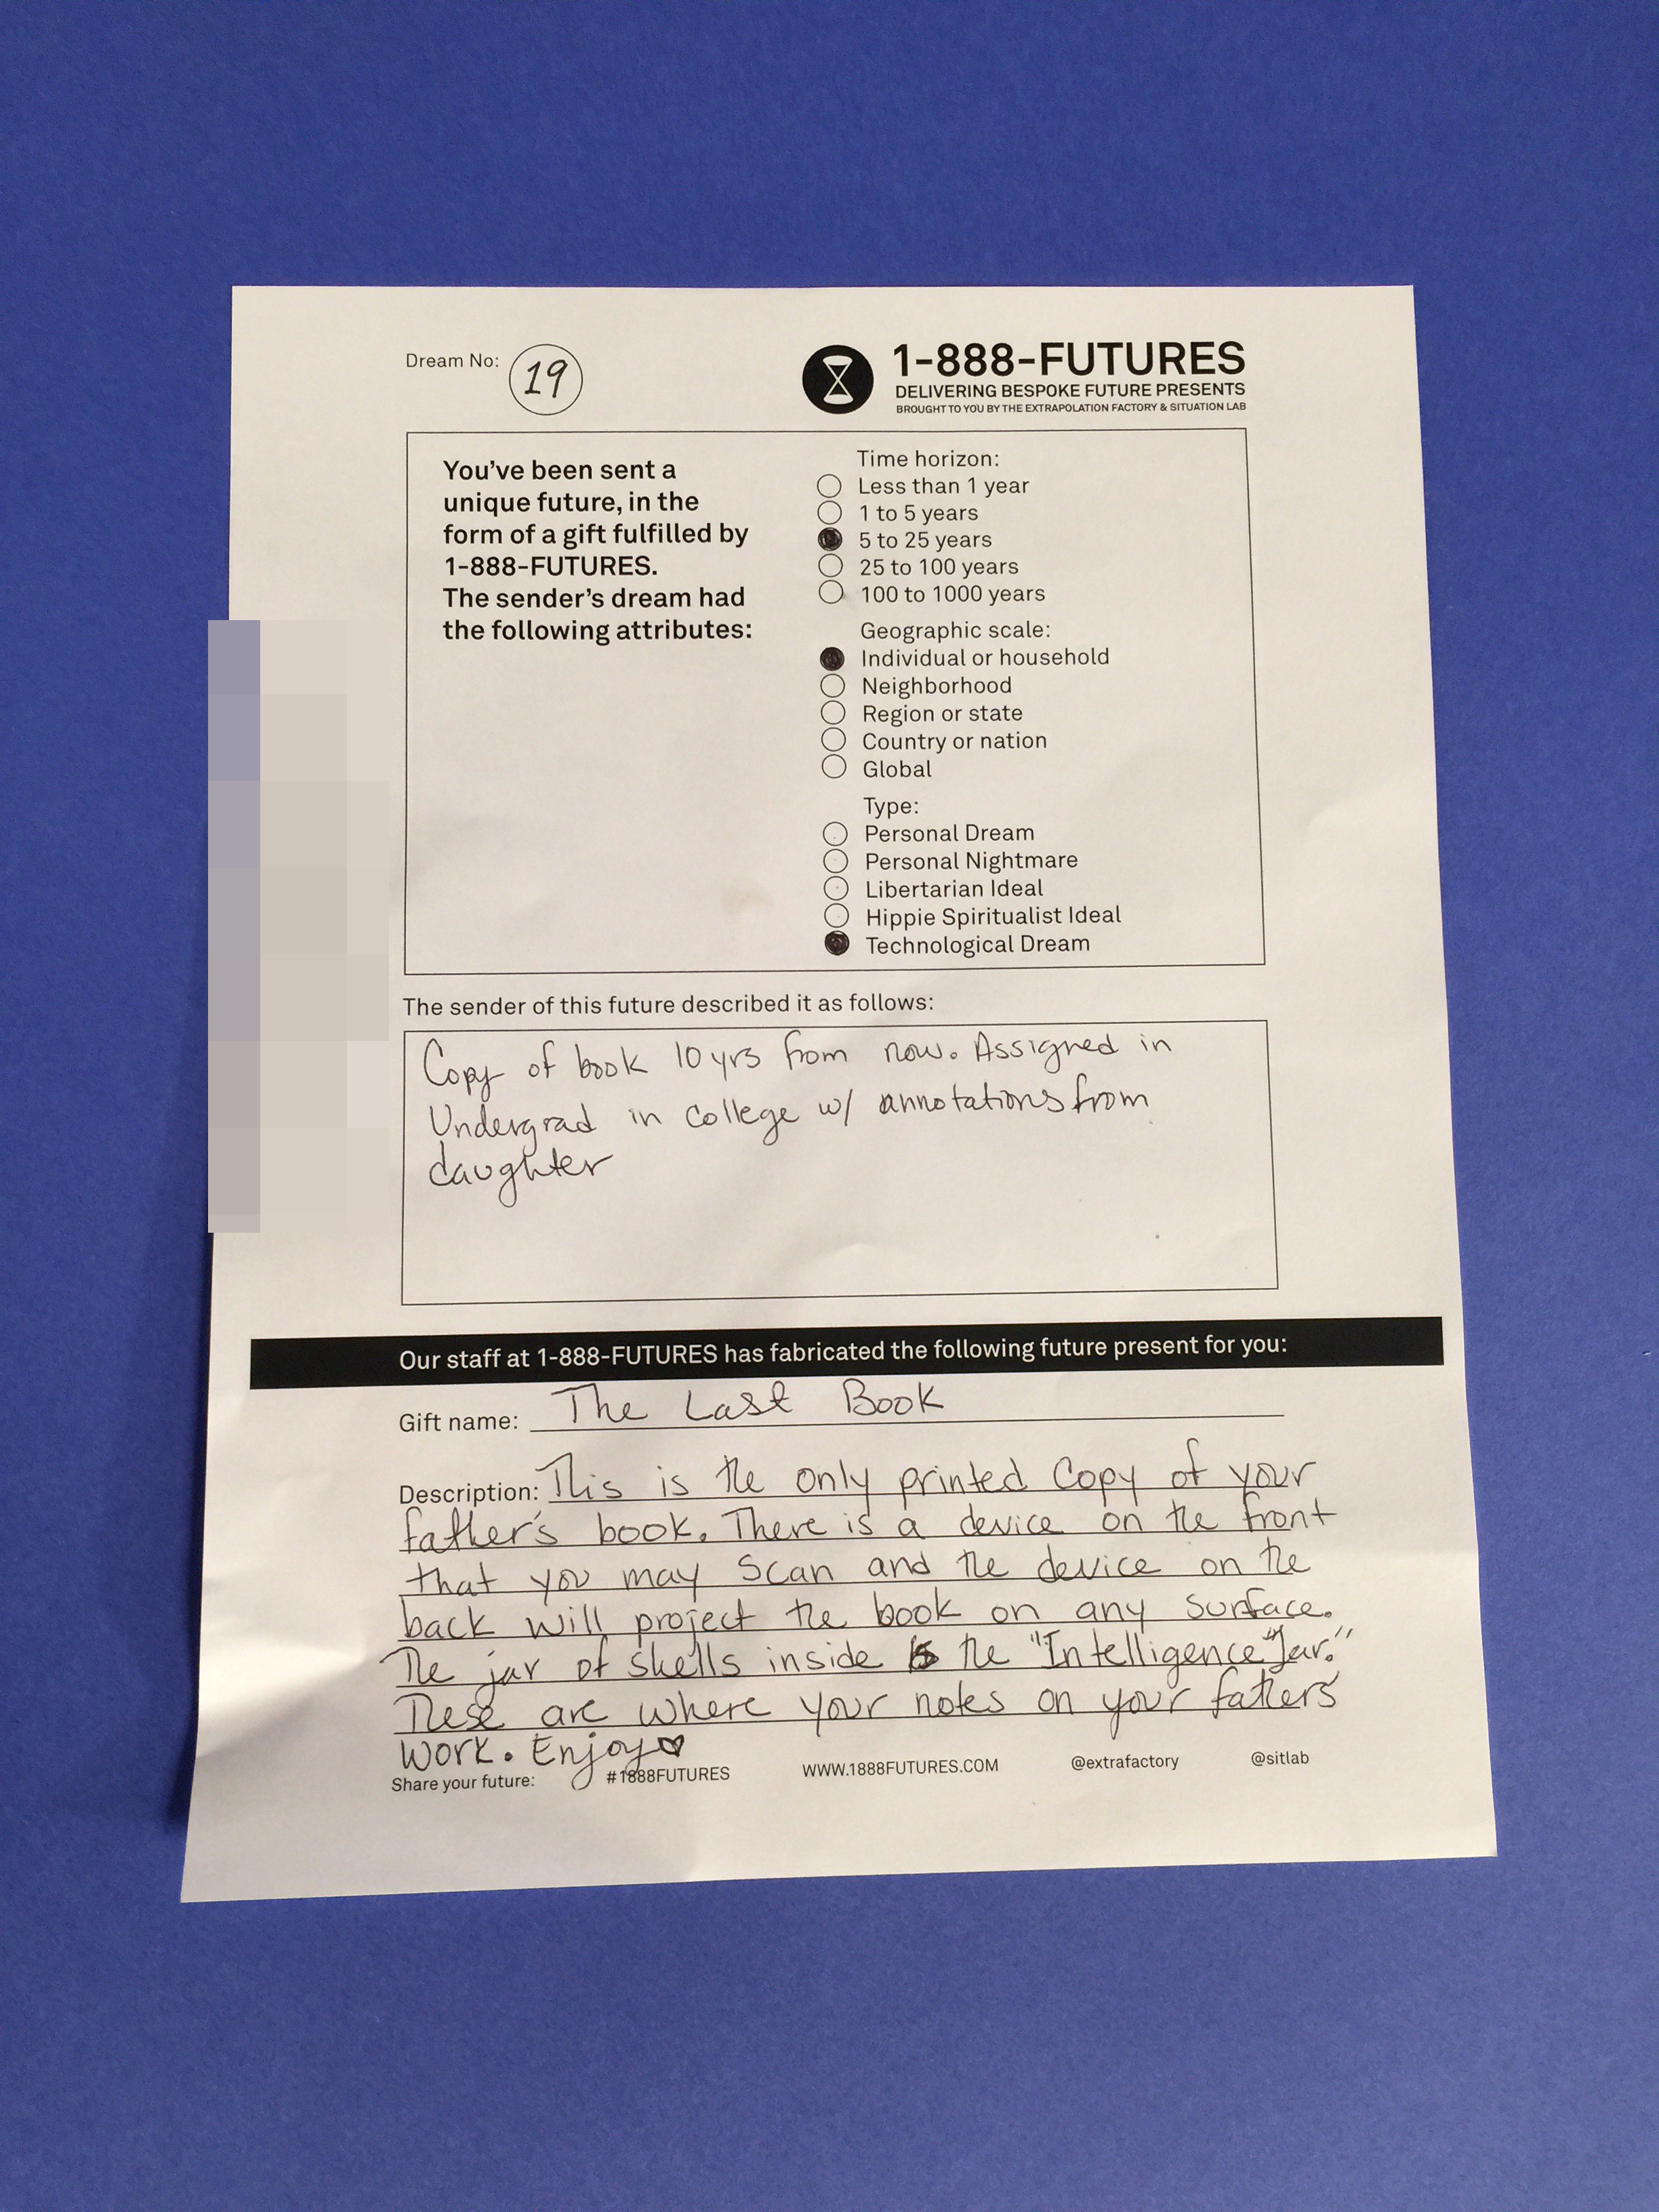 Dream No: 19
1-888-FUTURES
DELIVERING BESPOKE FUTURE PRESENTS
BROUGHT TO YOU BY THE EXTRAPOLATION FACTORY & SITUATION LAB
You've been sent a
unique future, in the
form of a gift fulfilled by
1-888-FUTURES.
The sender's dream had
the following attributes:
Time horizon:
Less than 1 year
1 to 5 years
5 to 25 years
25 to 100 years
100 to 1000 years
Geographic scale:
Individual or household
Neighborhood
Region or state
Country or nation
Global
Type:
Personal Dream
Personal Nightmare
Libertarian Ideal
Hippie Spiritualist Ideal
Technological Dream
The sender of this future described it as follows:
Copy of book 10 yrs from now. Assigned in
Undergrad in college w/ annotations from
daughter
Our staff at 1-888-FUTURES has fabricated the following future present for you:
Gift name: The Last Book
Description: This is the only printed Copy of your
father's book. There is a device on the front
that you may scan and the device on the
back will project the book on any surface.
The jar of shells inside is the "Intelligence Jar."
These are where your notes on your father's
work. Enjoy ♡
Share your future: #1888FUTURES WWW.1888FUTURES.COM @extrafactory @sitlab